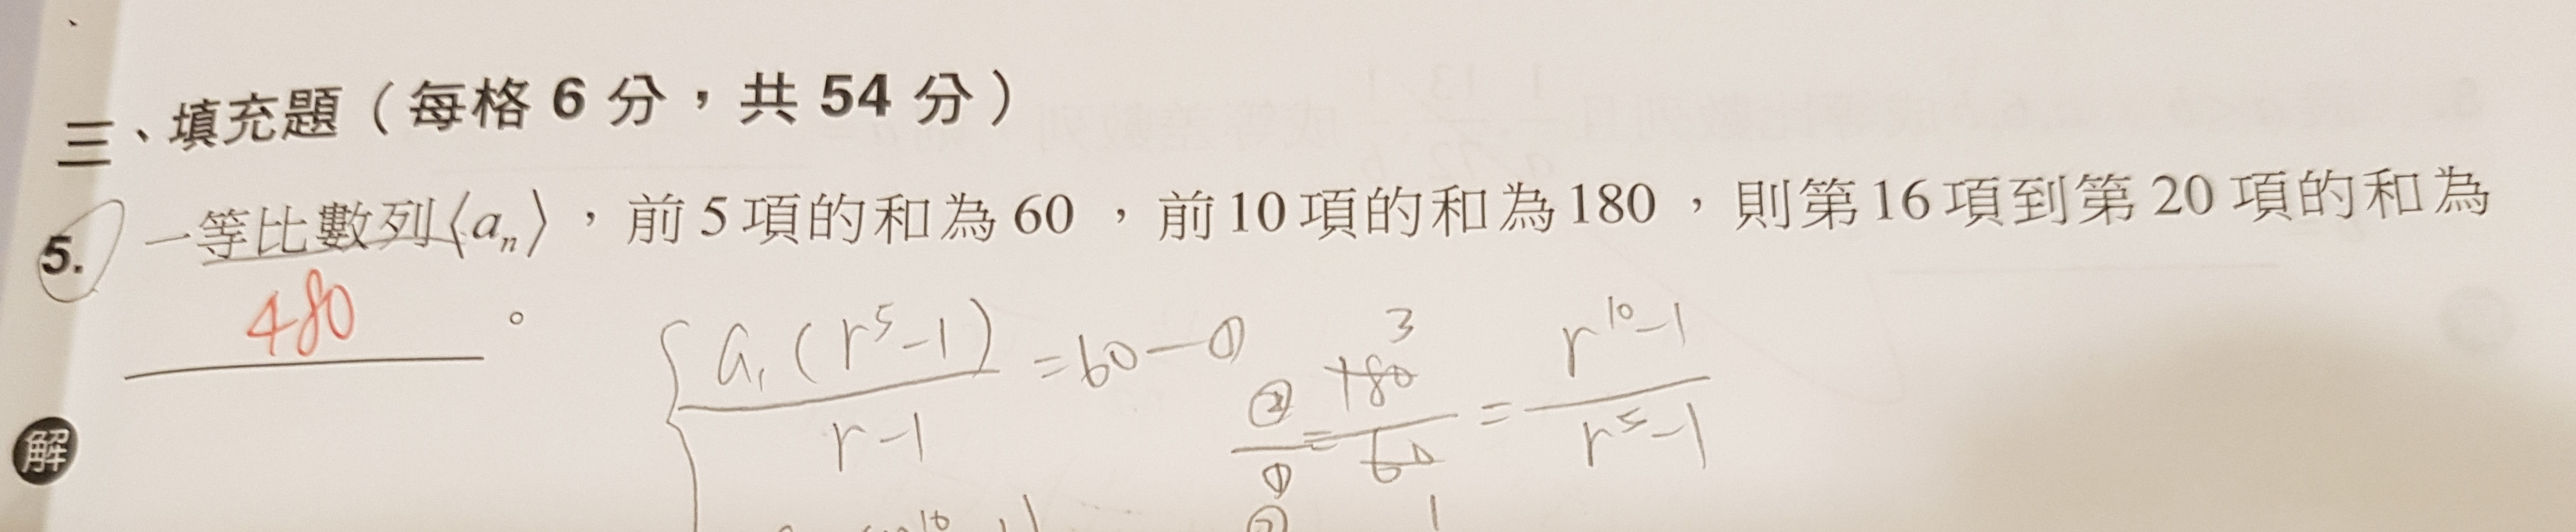 三、填充題（每格 6 分，共 54 分）
5. 一等比數列⟨aₙ⟩，前 5 項的和為 60，前 10 項的和為 180，則第 16 項到第 20 項的和為
480 。
解
{ a₁(r⁵-1) / r-1 = 60 -①
② / ① = 180 / 60 = r¹⁰-1 / r⁵-1
3